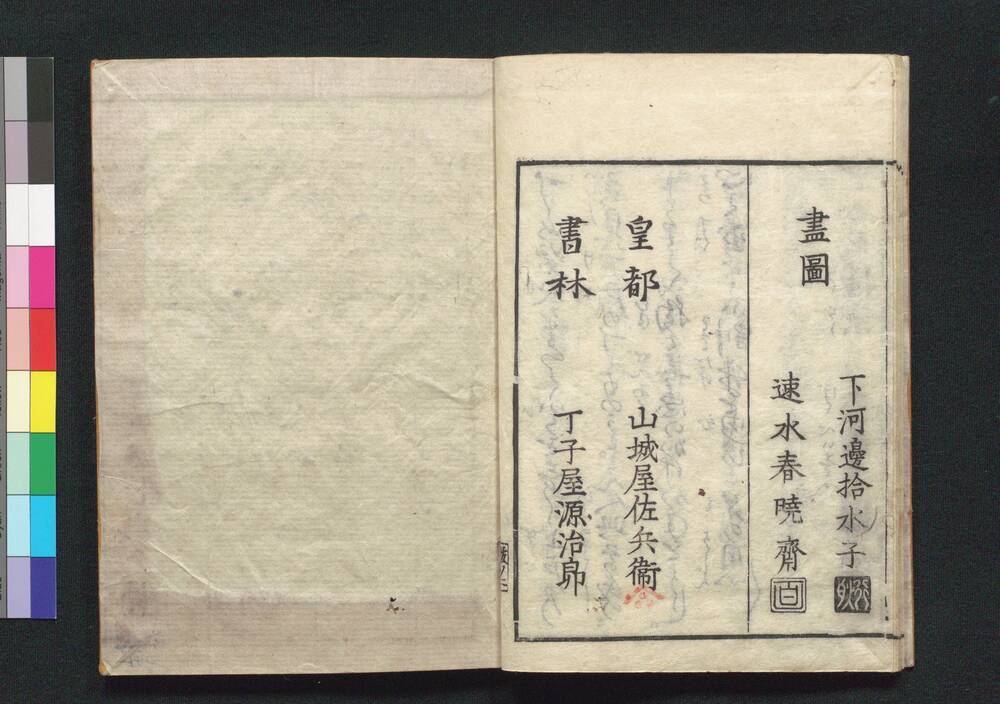 畫圖
下河邊拾水子
速水春暁齋
皇都
書林
山城屋佐兵衞
丁子屋源治郎